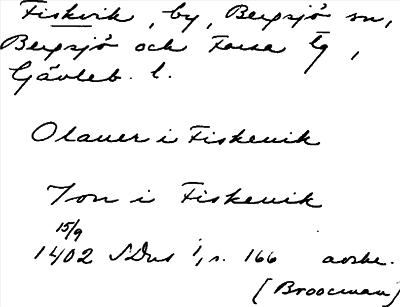 Fiskvik, by, Bergsjö sn,
Bergsjö och Forsa tg,
Gävleb. l.
Olauer i Fiskevik
Jon i Fiskevik
15/9
1402 SDns 1, s. 166 avskr.
[Broocman]